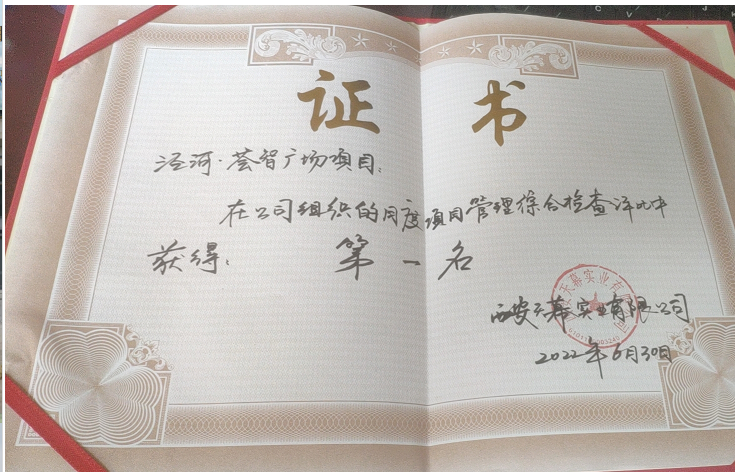 证书
泾河·荟智广场项目:
在公司组织的月度项目管理综合检查评比中
获得: 第一名
西安天幕实业有限公司
2022年6月30日